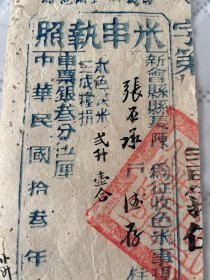 字第
米串執照
新會縣縣長陳 為征收色米事現
張 承戶
本色民米弍升壹合
二成糧捐
串票銀叁分 厘
中華民國拾叁年